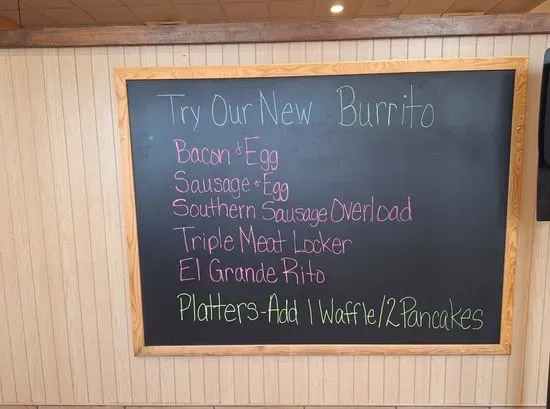 Try Our New Burrito
Bacon & Egg
Sausage & Egg
Southern Sausage Overload
Triple Meat Locker
El Grande Rito
Platters-Add 1 Waffle/2 Pancakes